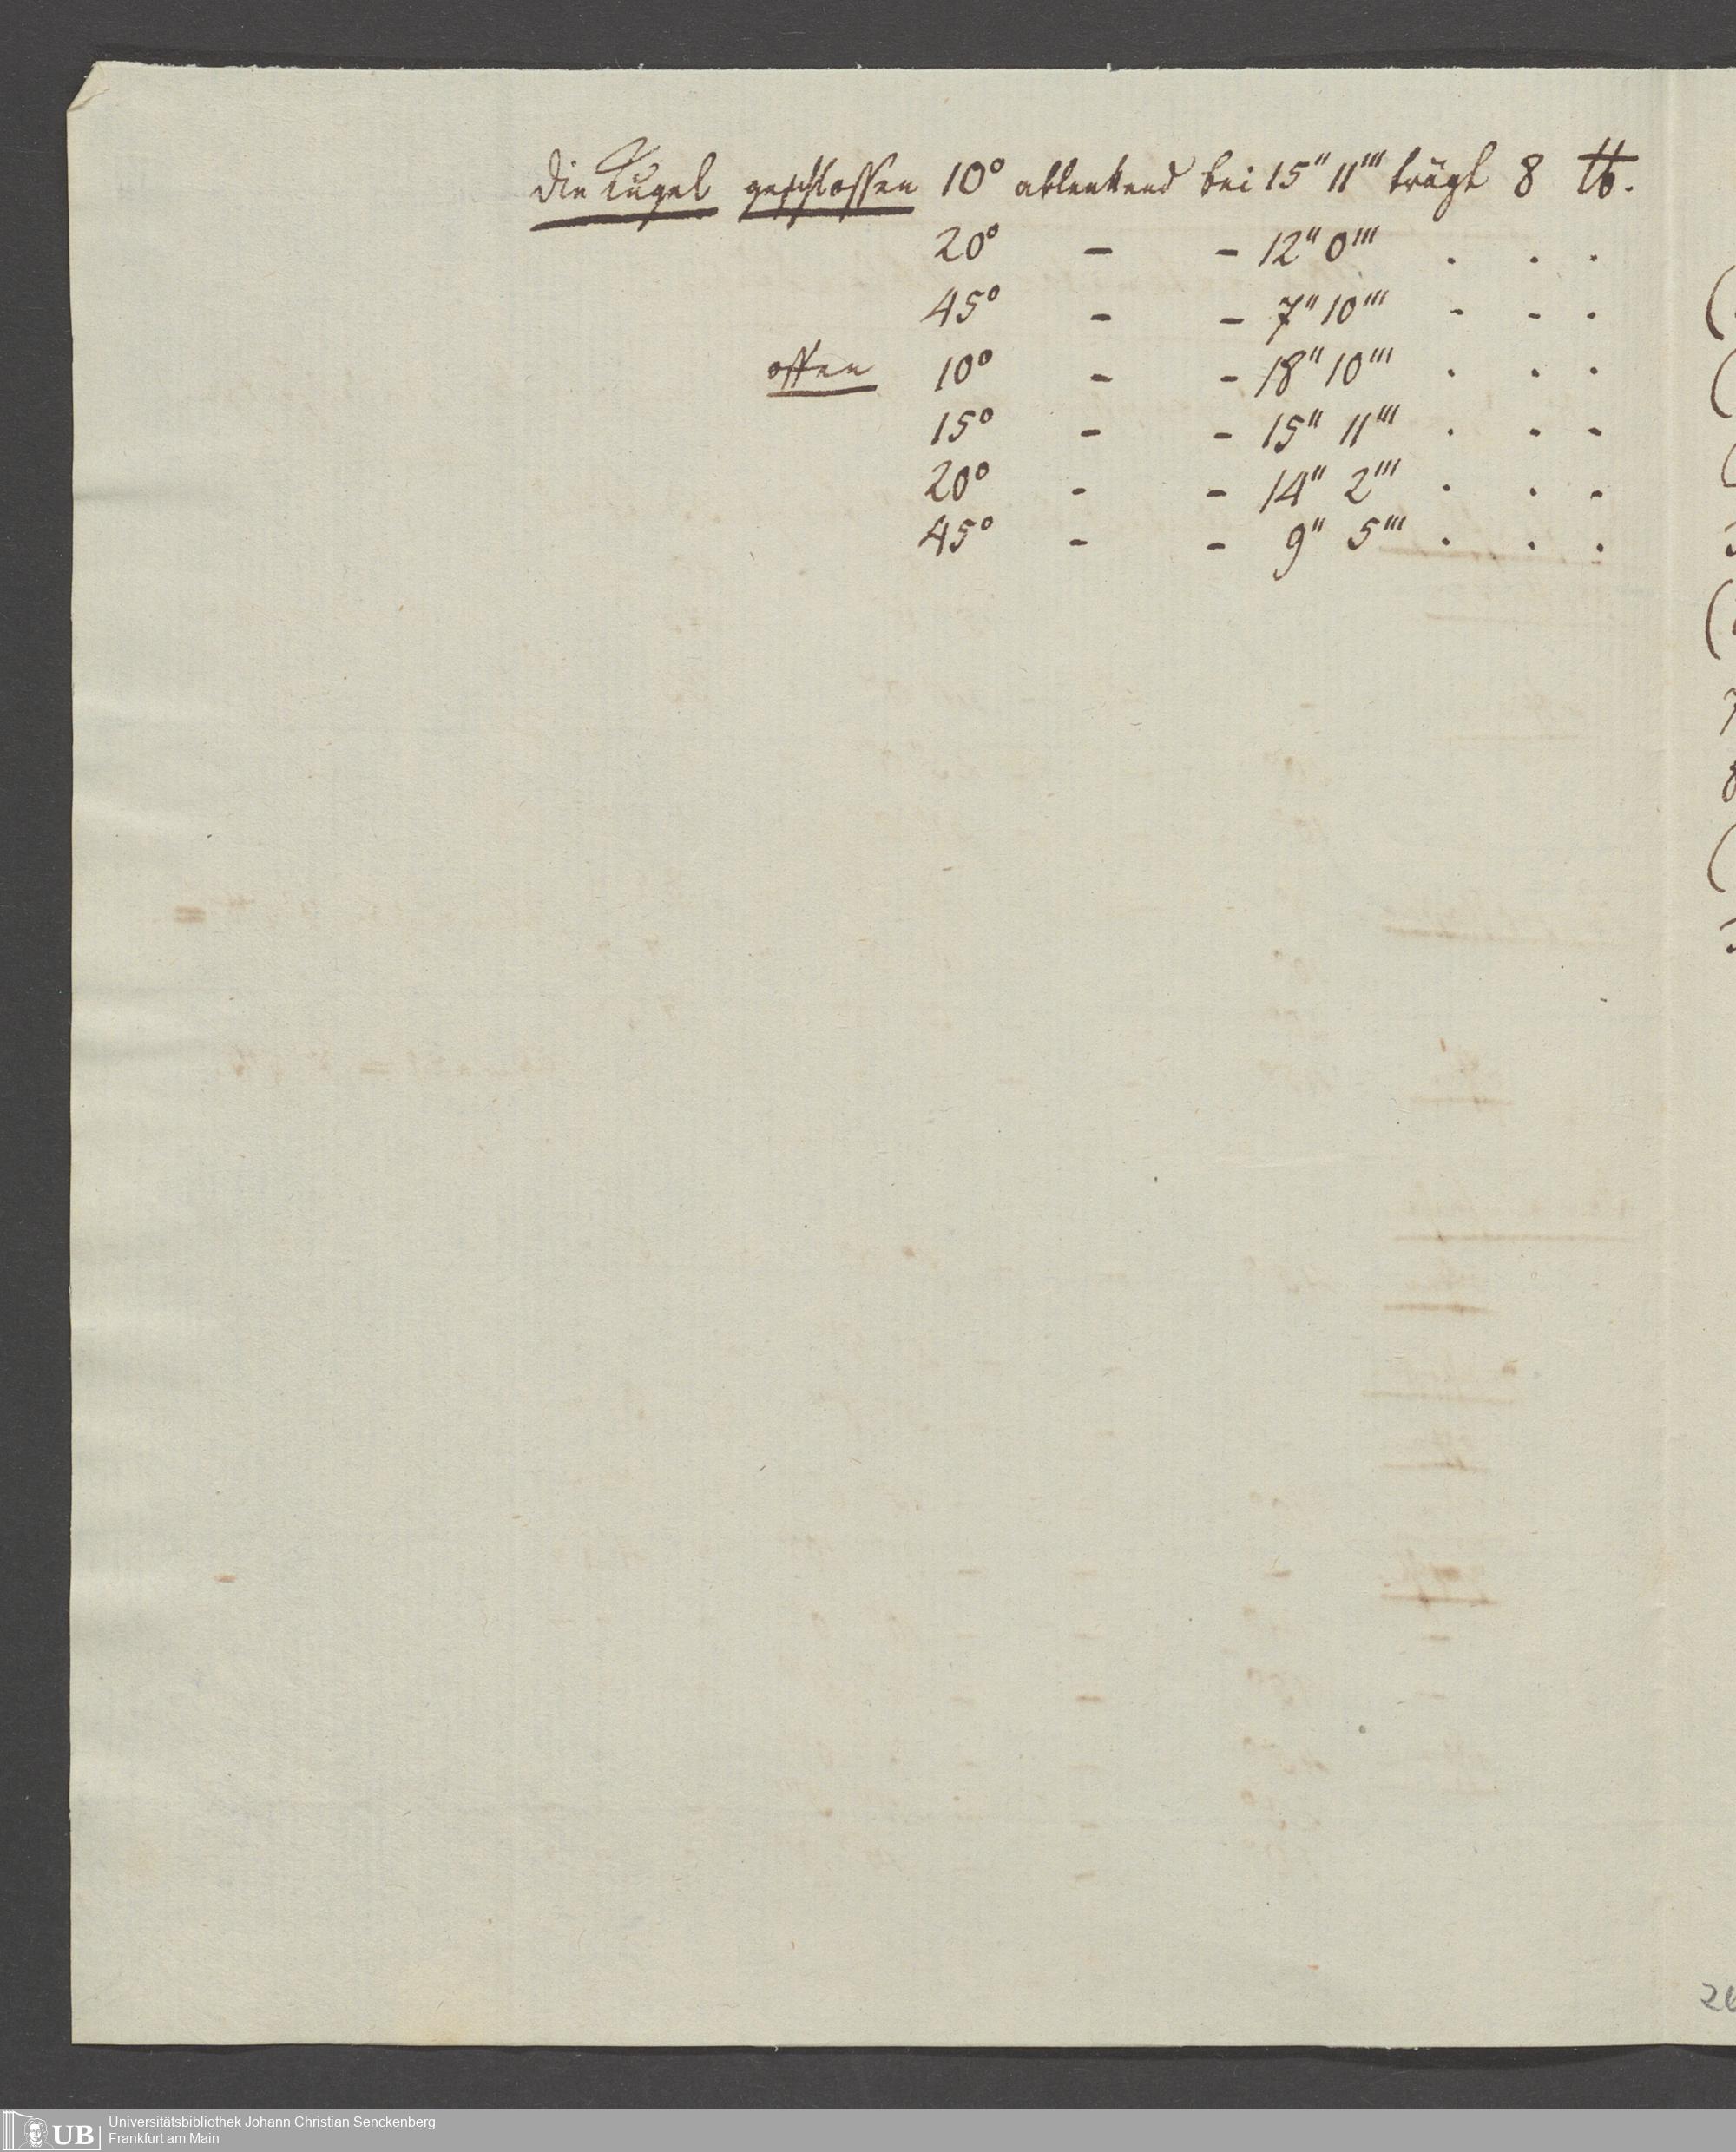 die Kugel geschlossen 10° ablenkend bei 15" 11''' trägt 8 ℔.
20° - - 12" 0''' . . .
45° - - 7" 10''' - - .
offen 10° - - 18" 10''' . . .
15° - - 15" 11''' . - -
20° - - 14" 2''' . . -
45° - - 9" 5''' . . .
UB
Universitätsbibliothek Johann Christian Senckenberg
Frankfurt am Main